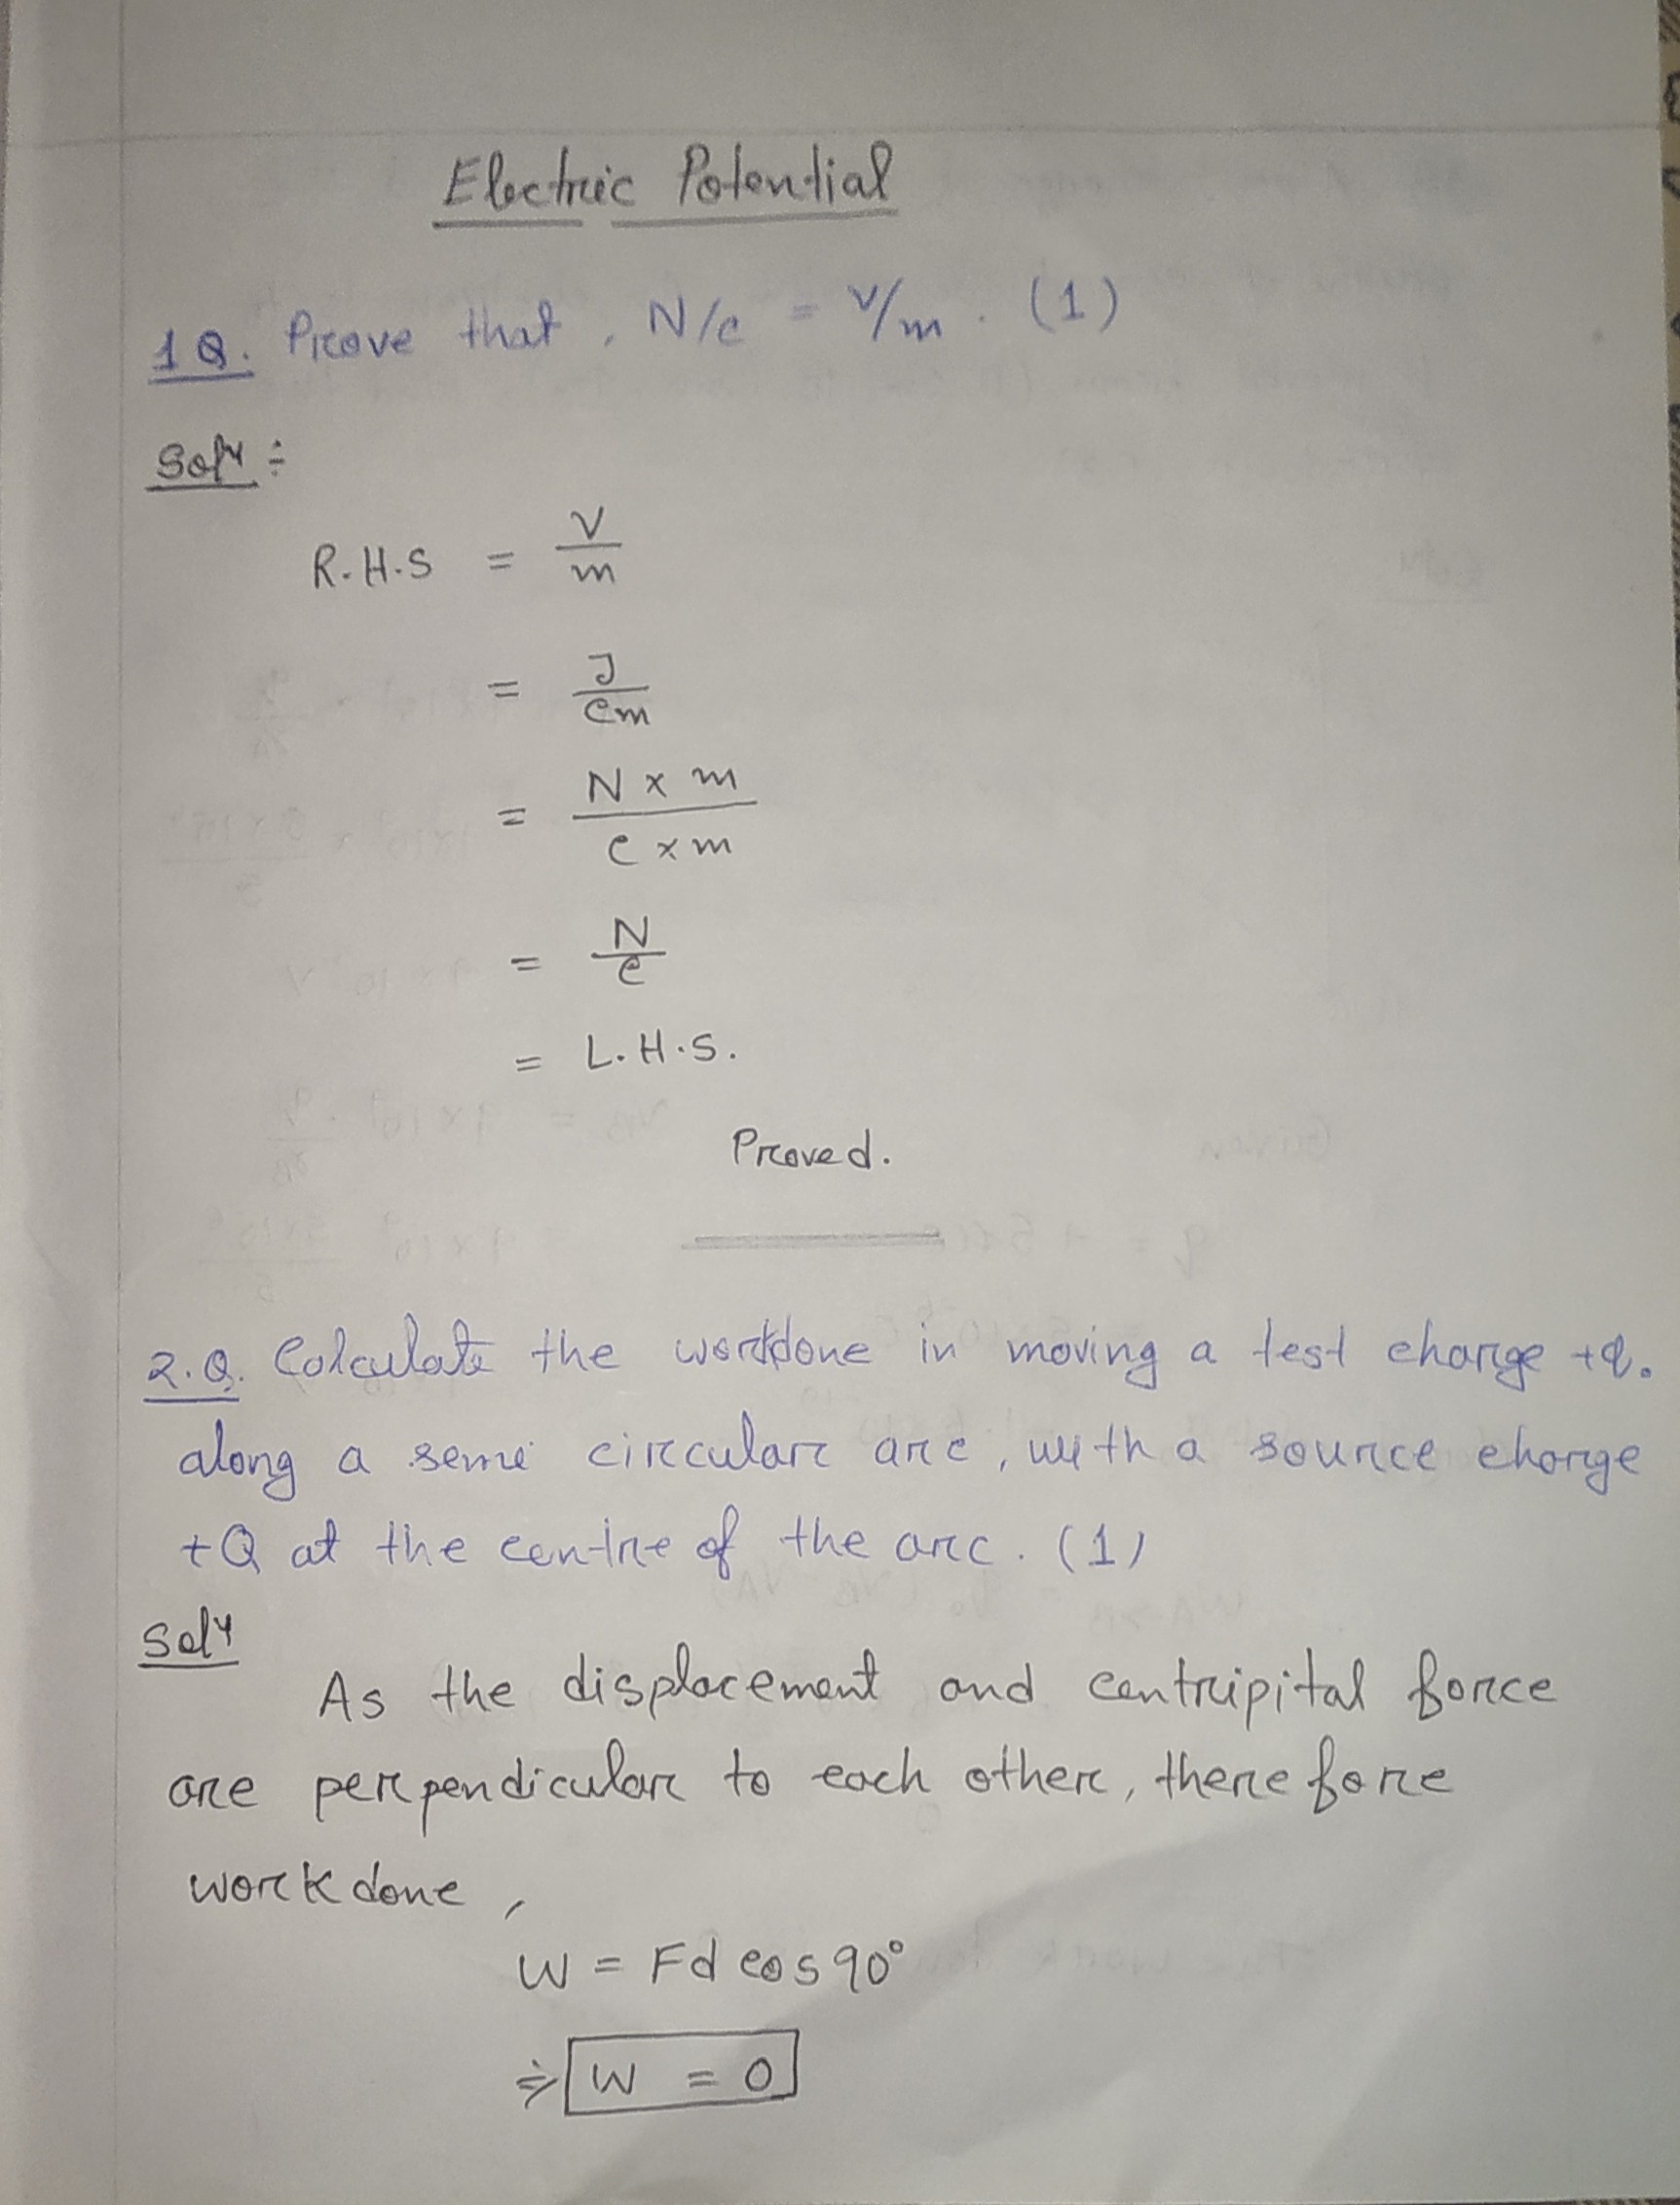 Electric Potential
1Q. Prove that, N/C = V/m. (1)
Solⁿ ÷
R.H.S = V/m
= J/Cm
= N x m / C x m
= N/C
= L.H.S.
Proved.
2.Q. Calculate the workdone in moving a test charge +q₀
along a semi circular arc, with a source charge
+Q at the centre of the arc. (1)
Solⁿ
As the displacement and centripital force
are perpendicular to each other, therefore
workdone,
W = Fd cos90°
⇒ W = 0